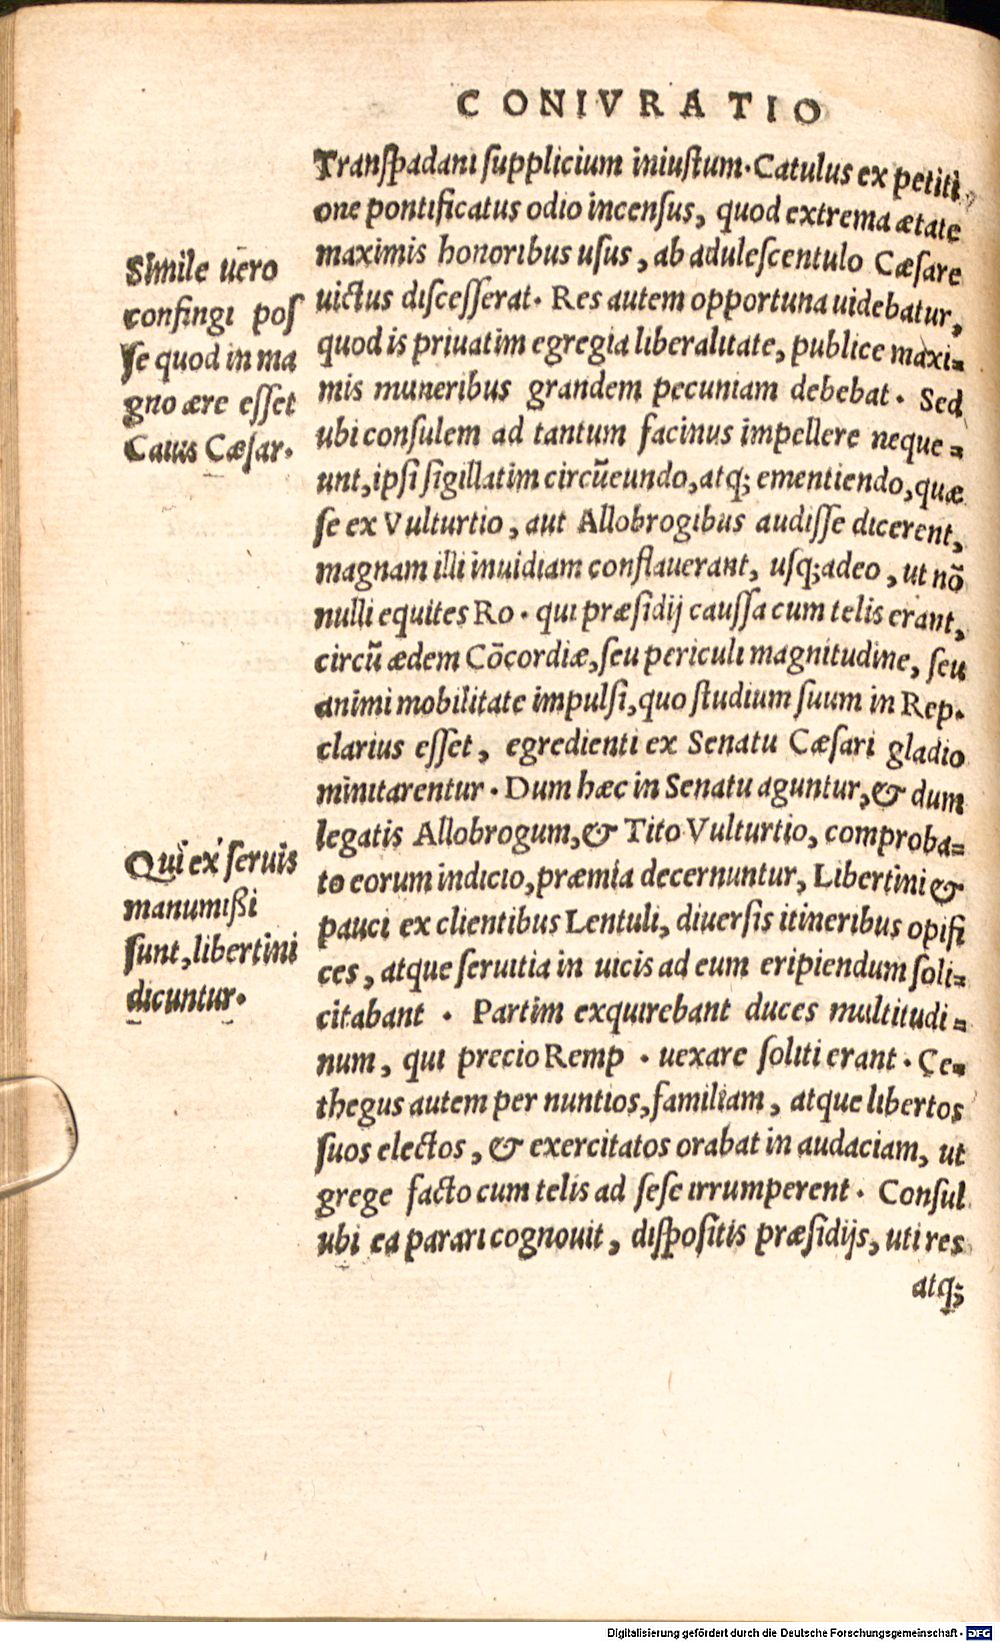 CONIVRATIO
Transpadani supplicium iniustum. Catulus ex petiti
one pontificatus odio incensus, quod extrema ætate
maximis honoribus usus, ab adulescentulo Cæsare
uictus discesserat. Res autem opportuna uidebatur,
quod is priuatim egregia liberalitate, publice maxi-
mis muneribus grandem pecuniam debebat. Sed
ubi consulem ad tantum facinus impellere neque-
unt, ipsi sigillatim circũeundo, atq; ementiendo, quæ
se ex Vulturtio, aut Allobrogibus audisse dicerent,
magnam illi inuidiam conflauerant, usq; adeo, ut nõ
nulli equites Ro. qui præsidij caussa cum telis erant,
circũ ædem Cõcordiæ, seu periculi magnitudine, seu
animi mobilitate impulsi, quo studium suum in Rep.
clarius esset, egredienti ex Senatu Cæsari gladio
minitarentur. Dum hæc in Senatu aguntur, & dum
legatis Allobrogum, & Tito Vulturtio, comproba-
to eorum indicio, præmia decernuntur, Libertini &
pauci ex clientibus Lentuli, diuersis itineribus opifi
ces, atque seruitia in uicis ad eum eripiendum soli-
citabant. Partim exquirebant duces multitudi-
num, qui precio Remp. uexare soliti erant. Ce-
thegus autem per nuntios, familiam, atque libertos
suos electos, & exercitatos orabat in audaciam, ut
grege facto cum telis ad sese irrumperent. Consul
ubi ea parari cognouit, dispositis præsidijs, uti res
atq;
Simile uero
confingi pos
se quod in ma
gno ære esset
Caius Cæsar.
Qui ex seruis
manumißi
sunt, libertini
dicuntur.
Digitalisierung gefördert durch die Deutsche Forschungsgemeinschaft - DFG